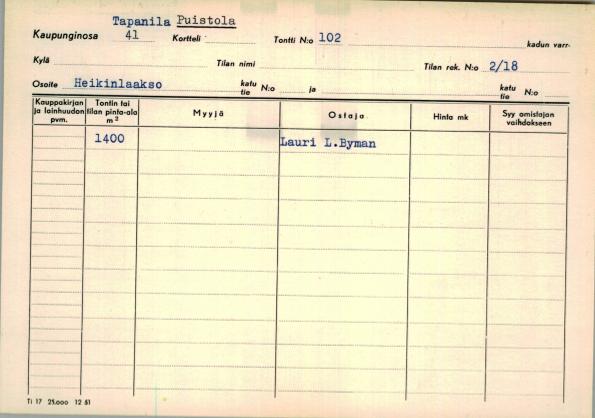 Tapanila Puistola
Kaupunginosa 41 Kortteli Tontti N:o 102 kadun varr-
Kylä Tilan nimi Tilan rek. N:o 2/18
Osoite Heikinlaakso katu tie N:o ja katu tie N:o
Kauppakirjan ja lainhuudon pvm. Tontin tai tilan pinta-ala m² Myyjä Ostaja Hinta mk Syy omistajan vaihdokseen
1400 Lauri L.Byman
TI 17 25.000 12 51